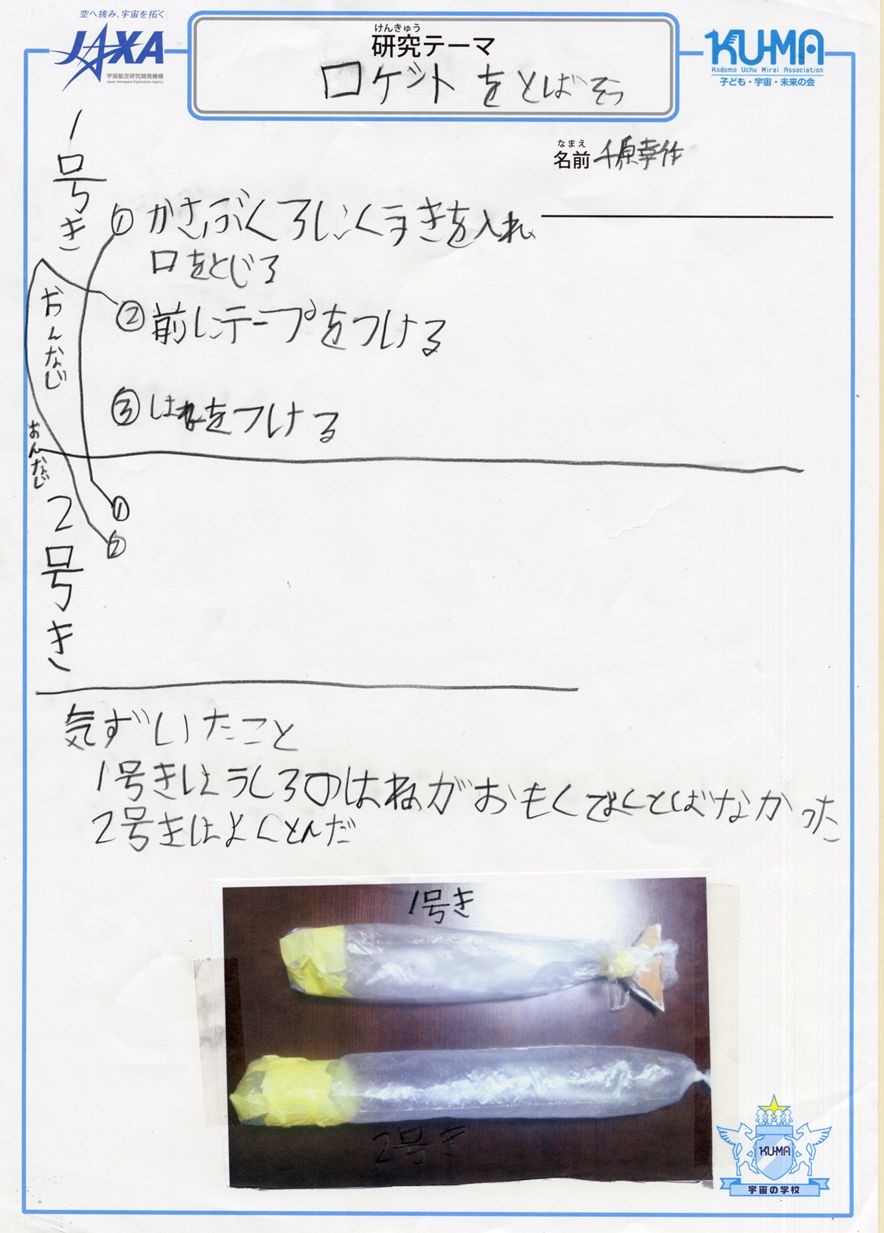 空へ挑み、宇宙を拓く
JAXA
宇宙航空研究開発機構
Japan Aerospace Exploration Agency
けんきゅう
研究テーマ
ロケットをとばそう
KU-MA
Kodomo Uchu Mirai Association
子ども・宇宙・未来の会
なまえ
名前 千原幸作
1号き
① かさぶくろにくうきを入れ
口をとじる
② 前にテープをつける
③ はねをつける
おんなじ
おんなじ
2号き
①
②
気ずいたこと
1号きはうしろのはねがおもくてよくとばなかった
2号きはよくとんだ
1号き
2号き
KU-MA
宇宙の学校